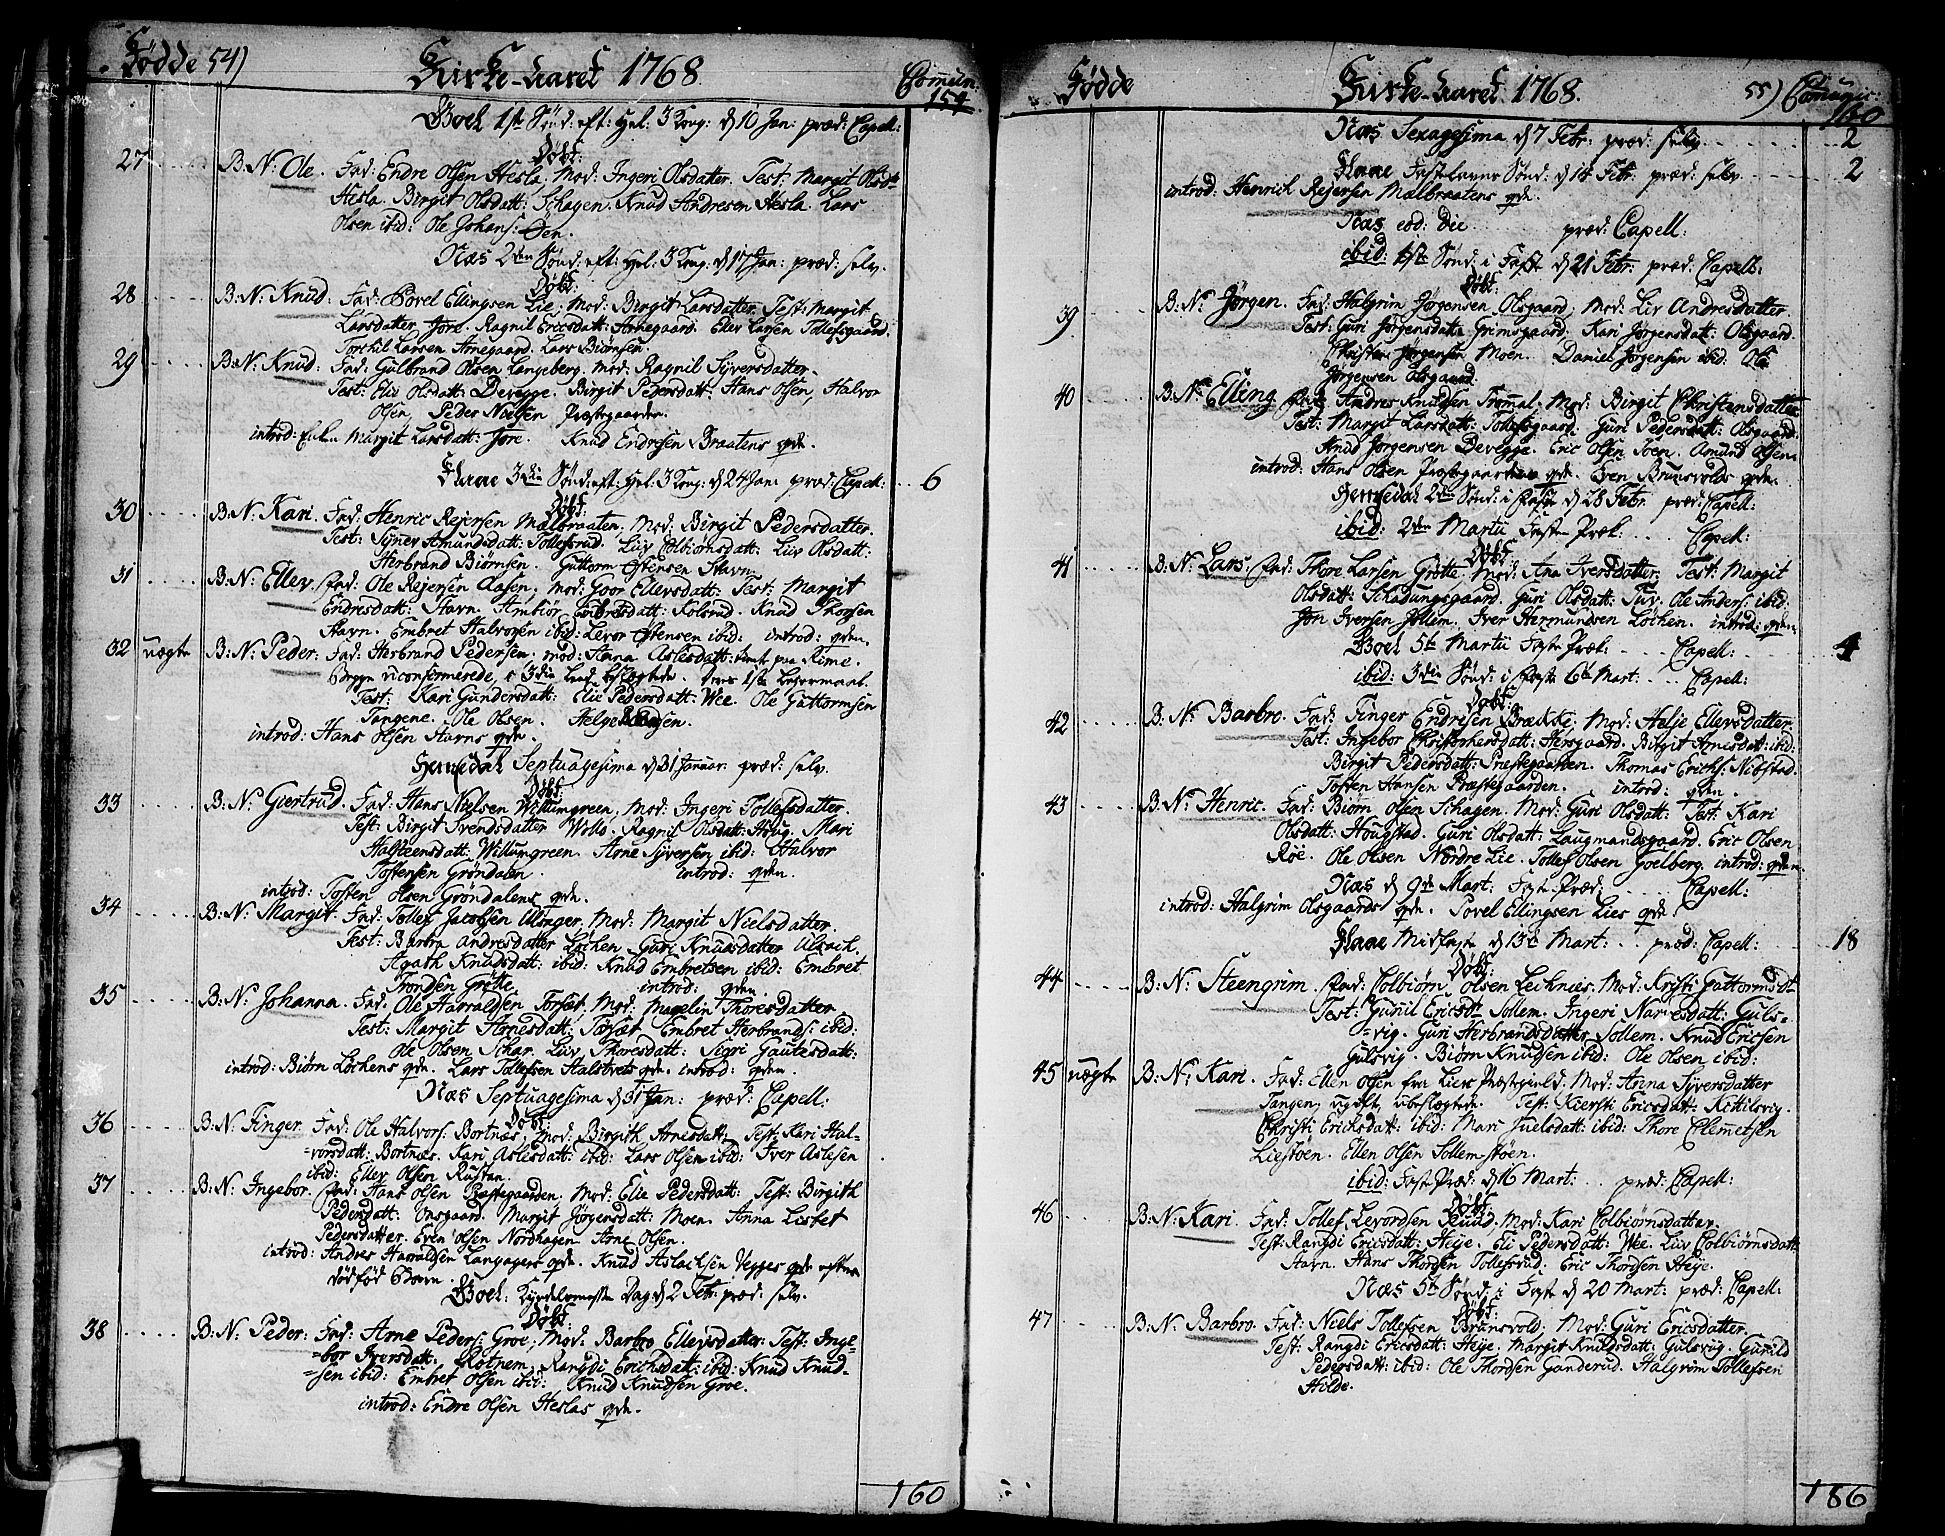 Fødde 54)
Kirke-Aaret 1768
Com̄un.
154
Goel 1ste Sønd: eft: Hel: 3 Kong: d 10 Jan: præd: Capell:
Døbt:
27 B: N: Ole. Fad: Endre Olsen Hesla, Mod: Ingeri Olsdatter. Test: Margit Olsd:
Hesla. Birgit Olsdatt: Schagen. Knud Andresen Hesla. Lars
Olsen ibid: Ole Johans: Øen.
Naes 2den Sønd: eft: Hel: 3 Kong: d 17 Jan: præd: selv.
Døbt:
28 B: N: Knud: Fad: Povel Ellingsen Lie, Mod: Birgit Larsdatter. Test: Margit
Larsdatter Jore. Ragnil Ericsdatt: Arnegaard. Eller Larsen Tollefsgaard.
Torchil Larsen Arnegaard. Lars Biørnsen.
29 B: N: Knud: Fad: Gulbrand Olsen Langeberg. Mod: Ragnil Syversdatter.
Test: Elie Olsdatt: Devegge. Birgit Pedersdatt: Hans Olsen, Halvor
Olsen, Peder Præstegaarden.
introd: Margit Larsdatt: Jore. Knud Endresen Braatens qde.
Flaae 3die Sønd: eft: Hel: 3 Kong: d 24 Jan: præd: Capell: 6
Døbt:
30 B: N: Kari. Fad: Henric Rejersen Malbraaten. Mod: Birgit Pedersdatter.
Test: Synev Amundsdatt: Tollefsrud. Liv Colbiørnsdatt: Liv Olsdatt:
Herbrand Biørnsen. Guttorm Østensen Stavn.
31 B: N: Ellev. Fad: Ole Rejersen Aasen, Mod: Goor Ellevsdatt: Test: Margit
Endresdatt: Stavn. Ambior Embretsdatt: Kolsrud. Knud Thorsen
Stavn. Embret Halvorsen ibid: Levor Østensen ibid: introd: qden.
32 uægte B: N: Peder: Fad: Herbrand Pedersen. Mod: Anna Aslesdatt: Rime.
Begge uconfirmerede, i 3die Leed beslægtede. Deres 1ste Leiermaal.
Test: Kari Gundersdatt: Elie Pedersdatt: Wee. Ole Guttormsen
Tangene. Ole Olsen. Helge
introd: Hans Olsen Stavns qde.
Hemsedal Septuagesima d 31 Januar: præd: selv.
Døbt:
33 B: N: Giertrud. Fad: Hans Nielsen Willumgreen, Mod: Ingeri Tollefsdatter.
Test: Birgit Svendsdatter Wøllo. Ragnil Olsdatt: Houg. Mari
Halsteensdatt: Willumgreen. Arne Syversen ibid: Halvor
Tostensen Grøndalen. introd: qden.
introd: Tosten Olsen Grøndalens qde.
34 B: N: Margit. Fad: Tollef Jacobsen Ulsager, Mod: Margit Nielsdatter.
Test: Barbra Andresdatter Løchen. Guri Knudsdatter Ulsach.
Agath Knudsdatt: ibid: Knud Embretsen ibid: Embret
Trondsen Grøtte. introd: qden.
35 B: N: Johanna. Fad: Ole Harraldsen Torset, Mod: Magelin Thoresdatter.
Test: Margit Arnesdatt: Torset. Embret Herbrands: ibid:
Ole Olsen Schar. Liv Thoresdatt: Sigri Gautesdatt:
introd: Biørn Løchens qde. Lars Tollefsen Halstvets qde. introd: qden.
Naes Septuagesima d 31 Jan: præd: Capell:
Døbt:
36 B: N: Finger. Fad: Ole Halvors: Bortnæs, Mod: Birgith Arnesdatt: Test: Kari Hal-
=vorsdatt: Bortnæs. Kari Aslesdatt: ibid: Lars Olsen ibid: Iver Aslesen
ibid: Ellev Olsen Rustan.
37 B: N: Ingebor. Fad: Hans Olsen Præstegaarden. Mod: Elie Pedersdatt: Test: Birgith
Pedersdatt: Onsgaard. Margit Jørgensdatt: Moen. Anna Lisbet
Pedersdatter. Even Olsen Nordhagen. Arne Olsen.
introd: Andres Harraldsen Langagers qde. Knud Aslachsen Vegges qde
dødfød Barn.
Goel: Kyndelsmesse Dag d 2 Feb: præd: selv.
Døbt:
38 B: N: Peder: Fad: Arne Peders: Groe, Mod: Barbro Ellevsdatter. Test: Inge-
=bor Iversdatt: Rotnem. Rangdi Erichsdatt: ibid: Knud Knud-
=sen ibid: Embret Olsen ibid: Knud Knudsen Groe.
introd: Endre Olsen Heslas qde.
160
Fødde
Kirke-Aaret 1768.
55) Com̄unic:
160
Naes Sexagesima d 7 Febr: præd: selv 2
Flaae Fastelavns Sønd: d 14 Febr: præd: selv 2
introd: Henrich Rejersen Malbraatens qde.
Naes eod: die præd: Capell:
ibid: 1ste Sønd: i Faste d 21 Febr: præd: Capell:
Døbt:
39 B: N: Jørgen. Fad: Halgrim Jørgensen Olsgaard, Mod: Liv Andresdatter.
Test: Guri Jørgensdatte Grimsgaard, Kari Jørgensdatt: Olsgaard.
Christen Jørgensen Moen. Daniel Jørgensen ibid: Ole
Jørgensen Olsgaard.
40 B: N: Elling. Fad: Andres Knudsen Trom̄al. Mod: Birgit Christensdatter.
Test: Margit Larsdatt: Tollefsgaard. Guri Pedersdatt: Olsgaard.
Knud Jørgensen Devegge. Eric Olsen Toen. Amund Olsen.
introd: Hans Olsen Præstegaardens qde. Even Brunsvolds qde.
Hemsedal 2den Sønd: i Faste d 28 Febr: præd: Capell:
ibid: 2den Martii Faste Præk: Capell:
Døbt:
41 B: N: Lars. Fad: Thore Larsen Grøtte. Mod: Ana Iversdatter. Test: Margit
Olsdatt: Schadungsgaard. Guri Olsdatt: Tuv. Ole Anders: ibid:
Jon Iversen Jollem. Iver Hermundsen Løchen. introd: qden.
Goel 5te Martii Faste Præk: Capell: 4
ibid: 3die Sønd: i Faste 6te Mart: Capell:
Døbt:
42 B: N: Barbro. Fad: Finger Endresen Brække, Mod: Helje Ellevsdatter.
Test: Ingebor Christophersdatt: Hersgaard. Birgit Arnesdatt: ibid:
Birgit Pedersdatt: Prestegaarden. Thomas Erichs: Nibstad.
Tosten Hansen Præstegaarden. introd: qden.
43 B: N: Henric. Fad: Biørn Olsen Schagen. Mod: Guri Olsdatt: Test: Kari
Olsdatt: Hougstad. Guri Olsdatt: Laugmandsgaard. Eric Olsen
Røe. Ole Olsen Nordre Lie. Tollef Olsen Goelberg. introd: qden.
Naes d 9de Mart: Faste Præd: Capell:
introd: Halgrim Olsgaards qde. Povel Ellingsen Lies qde.
Flaae Midfaste d 13de Mart: præd: Capell: 18
Døbt:
44 B: N: Steengrim. Fad: Colbiørn Olsen Lechnes, Mod: Kristi Guttormsdt
Test: Gunil Ericsdt Sollem. Ingeri Narvesdatt: Guls-
=vig. Guri Herbrandsdatter Sollem. Knud Ericsen
Gulsvig. Biørn Knudsen ibid: Ole Olsen ibid:
45 uægte B: N: Kari. Fad: Ellen Olsen fra Liers Præstegield. Mod: Anna Syversdatter
Tangen, ugift, ubeslægtede. Test: Kiersti Ericsdatt: Kittilsvig.
Christi Erichsdatt: ibid: Mari Juelsdatt: ibid: Thore Clemmetsen
Liestøen. Ellen Olsen Sollemstøen.
ibid: Faste Præd: d 16 Mart: præd: Capell:
Døbt:
46 B: N: Kari. Fad: Tollef Levordsen Mod: Kari Colbiørnsdatter.
Test: Rangdi Ericsdatt: Heye. Eli Pedersdatt: Wee. Liv Colbiørnsdatt:
Stavn. Hans Thordsen Tollefsrud. Eric Thordsen Heye.
Naes 5te Sønd: i Faste d 20 Mart: præd: Capell:
Døbt:
47 B: N: Barbro. Fad: Niels Tollefsen Brunsvold. Mod: Guri Ericsdatter.
Test: Rangdi Ericsdatt: Heye. Margit Knudsdatt: Gulsvig. Gunild
Pedersdatt: ibid: Ole Thordsen Ganderud. Halgrim Tollefsen
Hilde.
186